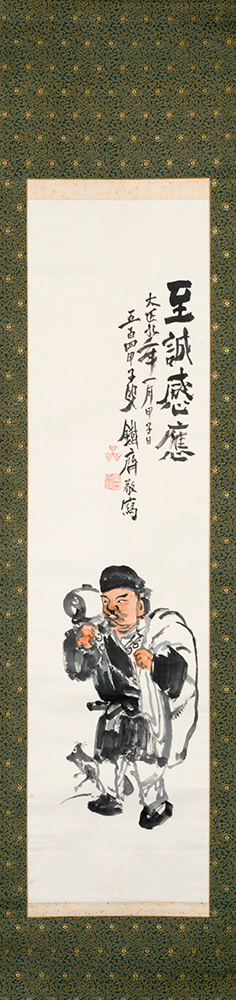 至誠感應
大正九年一月甲子日
五百四甲子叟鐵齋敬寫